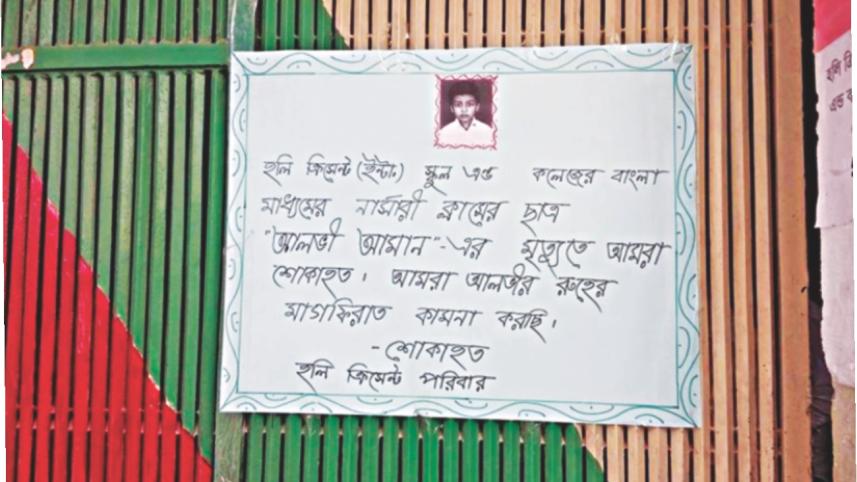 হলি ক্রিসেন্ট (ইন্টাঃ) স্কুল এন্ড কলেজের বাংলা
মাধ্যমের নার্সারী ক্লাসের ছাত্র
"আলভী আমান"-এর মৃত্যুতে আমরা
শোকাহত। আমরা আলভীর রুহের
মাগফিরাত কামনা করছি।
-শোকাহত
হলি ক্রিসেন্ট পরিবার